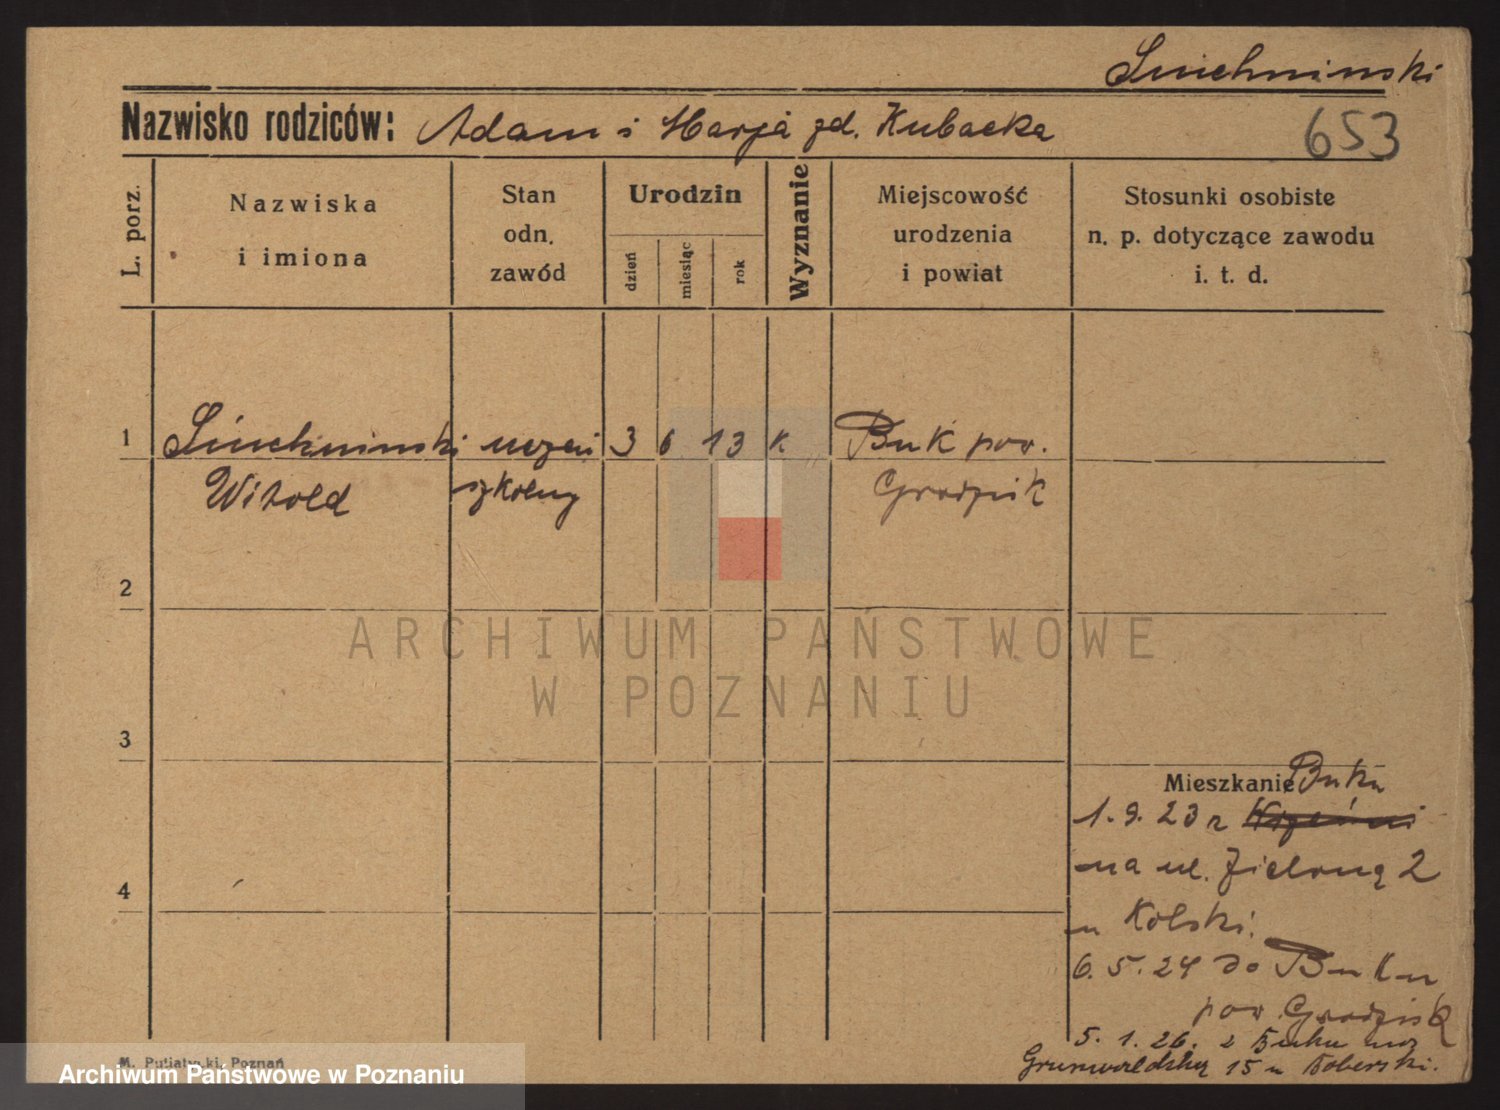 Smichninski
Nazwisko rodziców: Adam i Marja zd. Kubacka
653
L. porz.
Nazwiska
i imiona
Stan
odn.
zawód
Urodzin
dzień
miesiąc
rok
Wyznanie
Miejscowość
urodzenia
i powiat
Stosunki osobiste
n. p. dotyczące zawodu
i. t. d.
1
uczeń 3 6 13 k Buk pow.
Witold szkolny Grodzisk
2
ARCHIWUM PAŃSTWOWE
W POZNANIU
3
Mieszkanie Buku
1.9.23 z
na ul. Zieloną 2
u Kolski.
4
6.5.24 do Buku
pow. Grodzisk
5.1.26. z Buku na
Grunwaldzką 15 u Boberski.
M. Putiatycki, Poznań
Archiwum Państwowe w Poznaniu